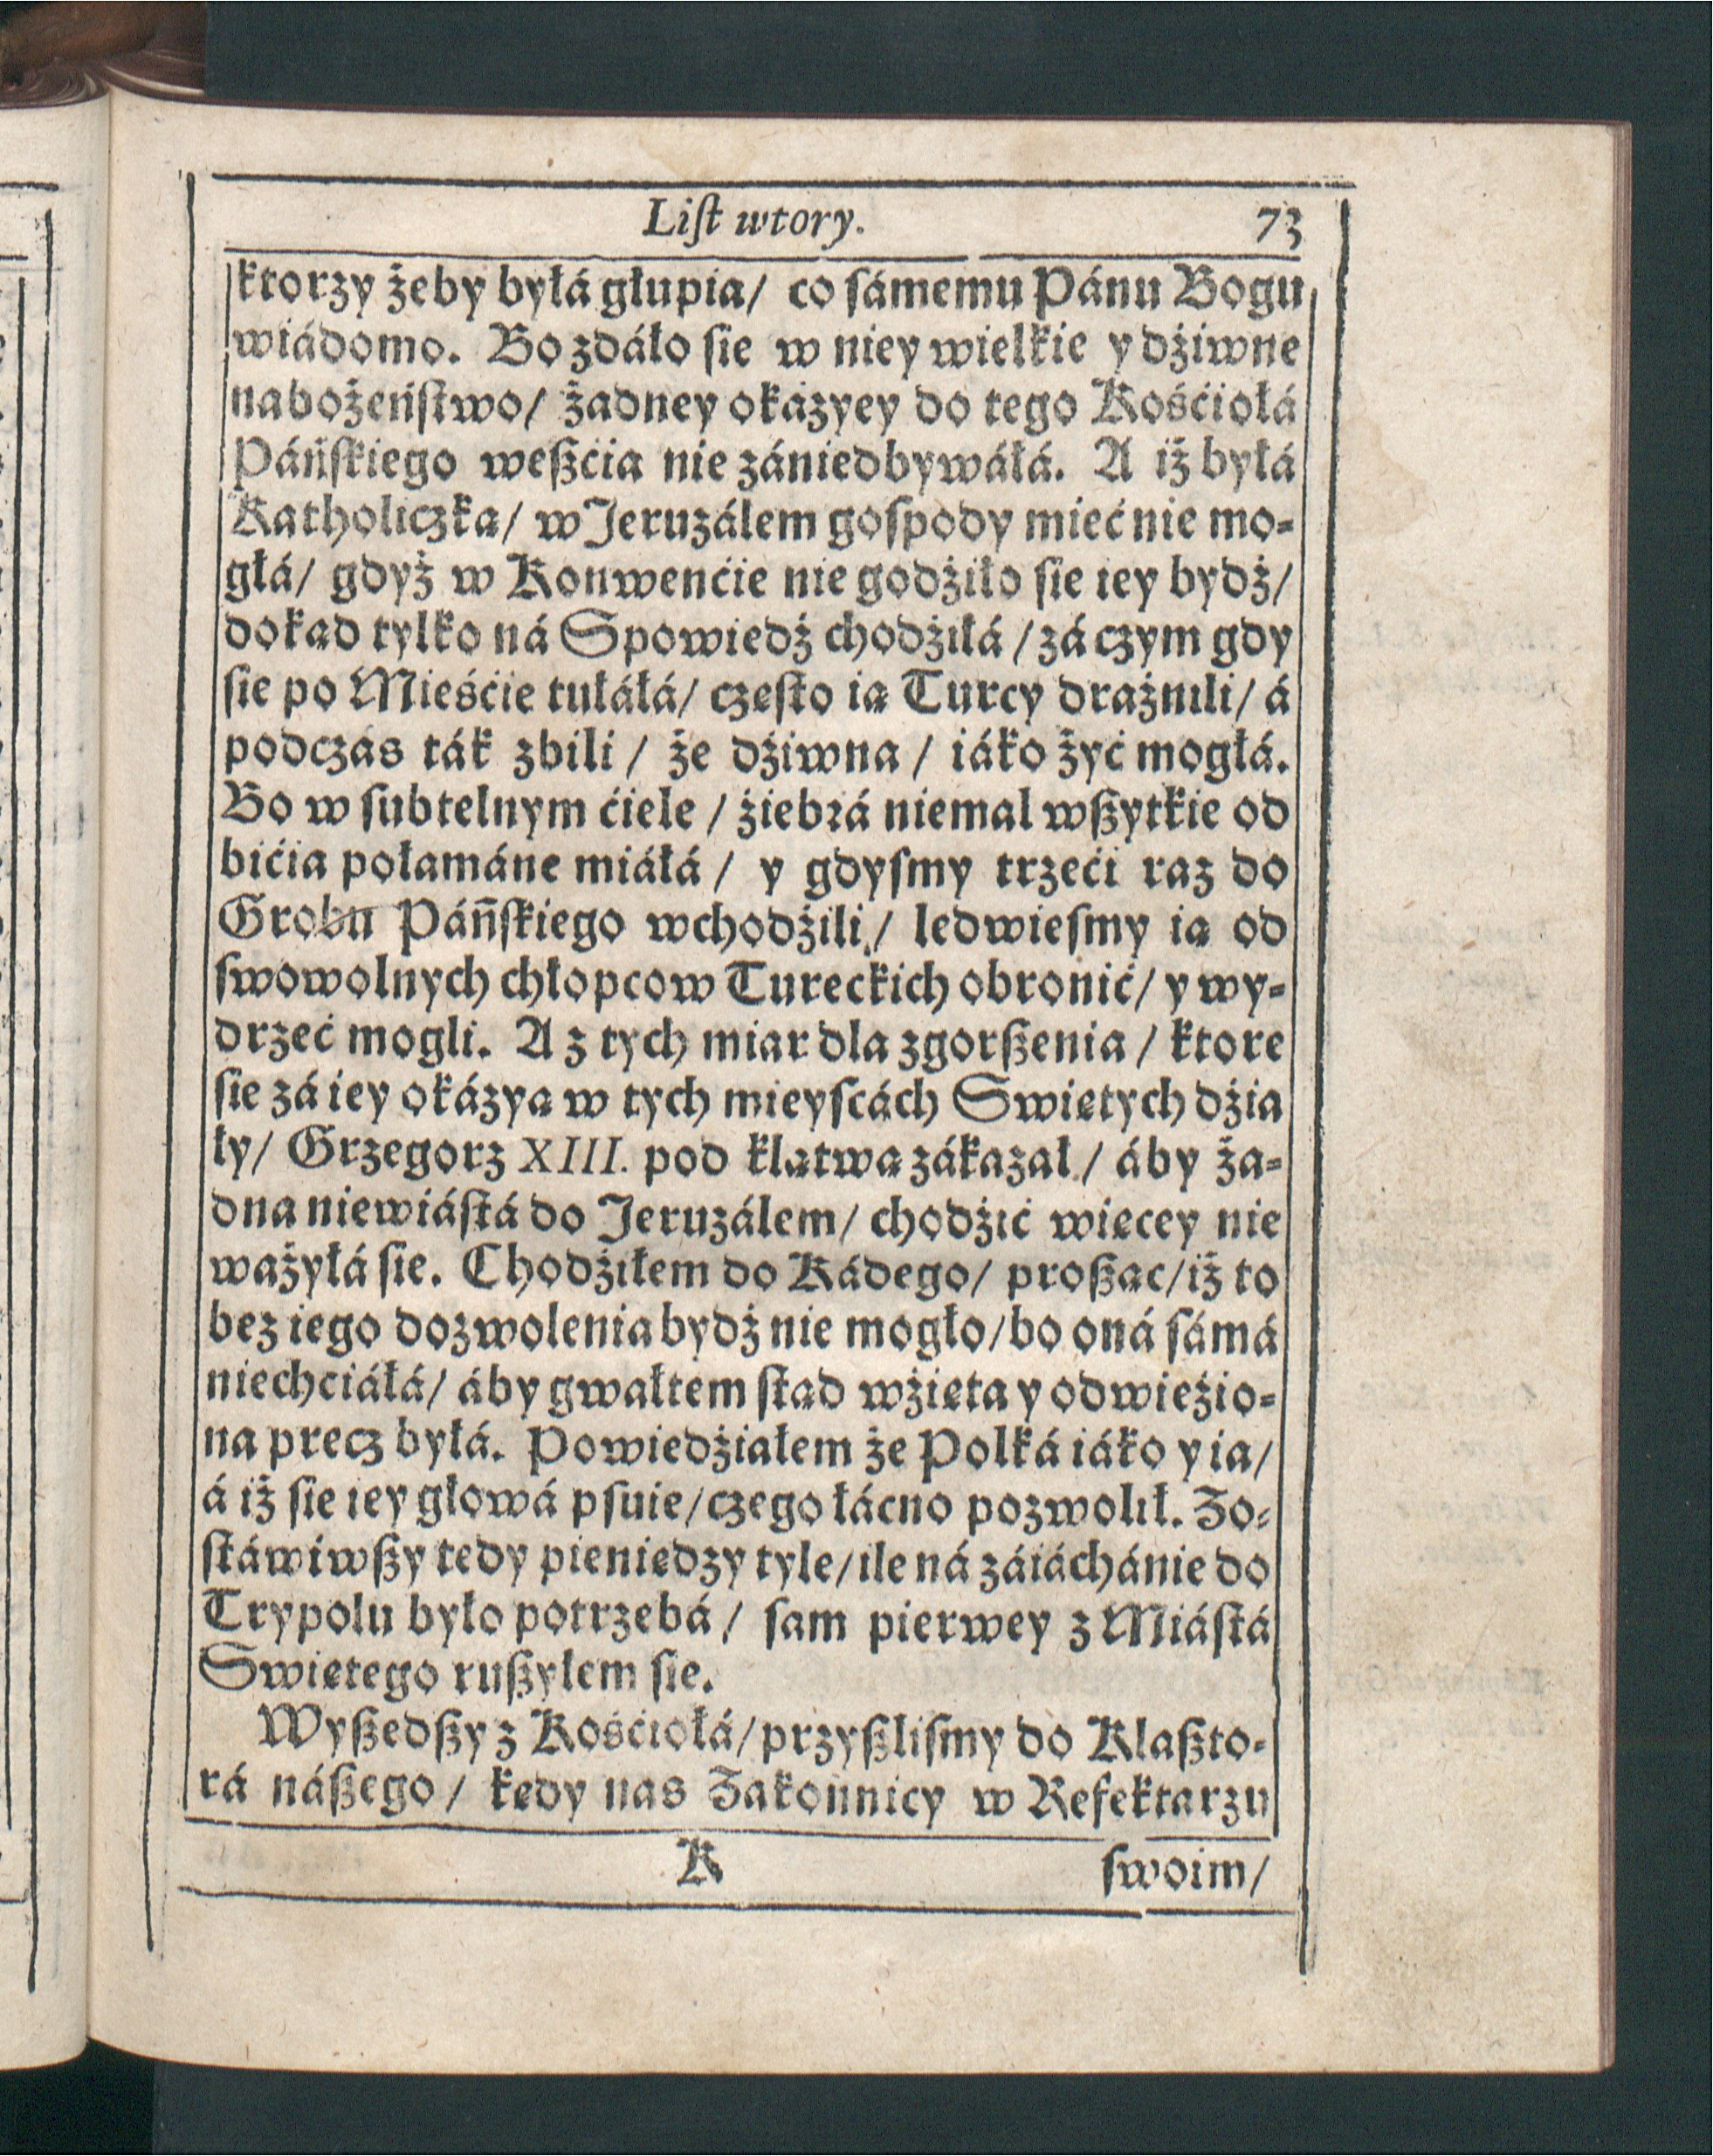 Liſt wtory. 73
ktorzy żeby byłá głupia/ co ſámemu Pánu Bogu
wiádomo. Bo zdáło ſie w niey wielkie y dżiwne
nabożeńſtwo/ żadney okázyey do tego Kośćiołá
Páńſkiego weßćia nie zániedbywáłá. A iż byłá
Katholiczka/ w Jeruzálem goſpody mieć nie mo-
głá/ gdyż w Konwenćie nie godżiło ſie iey bydź/
dokąd tylko ná Spowiedź chodżiłá/ zá czym gdy
ſie po Mieśćie tułáłá/ często ią Turcy drażnili/ á
podczás ták zbili/ że dżiwna/ iáko żyć mogłá.
Bo w ſubtelnym ćiele/ żiebrá niemal wßytkie od
bićia połamáne miáłá/ y gdyſmy trzeći raz do
Grobu Páńſkiego wchodżili/ ledwieſmy ią od
ſwowolnych chłopcow Tureckich obronić/ y wy-
drzeć mogli. A z tych miar dla zgorßenia/ ktore
ſie zá iey okázyą w tych mieyſcách Swiętych dżia
ły/ Grzegorz XIII. pod klątwą zákazał/ áby ża-
dna niewiáſtá do Jeruzálem/ chodżić więcey nie
ważyłá ſie. Chodżiłem do Kádego/ proßąc/ iż to
bez iego dozwolenia bydź nie mogło/ bo oná ſámá
niechciáłá/ áby gwałtem ſtąd wżięta y odwieżio-
na precz byłá. Powiedżiałem że Polká iáko y ia/
á iż ſie iey głowá pſuie/ czego łácno pozwolił. Zo-
ſtáwiwßy tedy pieniędzy tyle/ ile ná záiáchánie do
Trypolu było potrzebá/ ſam pierwey z Miáſtá
Swiętego rußyłem ſie.
Wyßedßy z Kośćiołá/ przyßliſmy do Klaßto-
rá náßego/ kędy nas Zakonnicy w Refektarzu
K ſwoim/